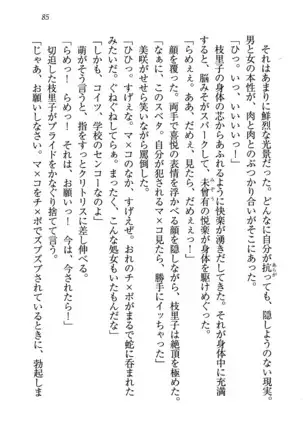 85
それはあまりに鮮烈な光景だった。どんなに自分が抗っても、隠しようのない現実。
男と女の本性が、肉と肉とのぶつかり合いがそこにあった。
「ひっ。いい、いいいいっ！」
枝里子の身体の芯からあふれるように快楽が湧きだしてきた。それが身体中に充満
すると、脳みそがスパークして、未曾有の悦楽が身体を駆けめぐった。
「らめぇぇっ。らめぇぇ、だめぇぇ……っ！」
顔を覆った。両手で喜悦の表情を浮かべる顔を隠しながら、枝里子は絶頂を極めた。
「なに、このスベタ。自分が犯されるマ×コ見たら、勝手にイッちゃった」
美咲がせせら笑いながら罵倒した。
「ひひっ。すげえな。マ×コのなか、すげえぜ。おれのチ×ポがまるで蛇に呑まれた
みたいだ。ぐねぐねしてらぁ。まったく、こんな処女もいたもんだな」
「しかも、コイツ、学校のセンコーなのよ」
萌がそう言うと、指をすっとクリトリスに差し伸べる。
「らめっ！　らめっ！　それは、お願いっ！　今は、今されたら！」
切迫した枝里子がプライドをかなぐり捨てて言う。
「じゃあ、お願いしなさい。マ×コをチ×ポでズブズブされているときに、勃起しま